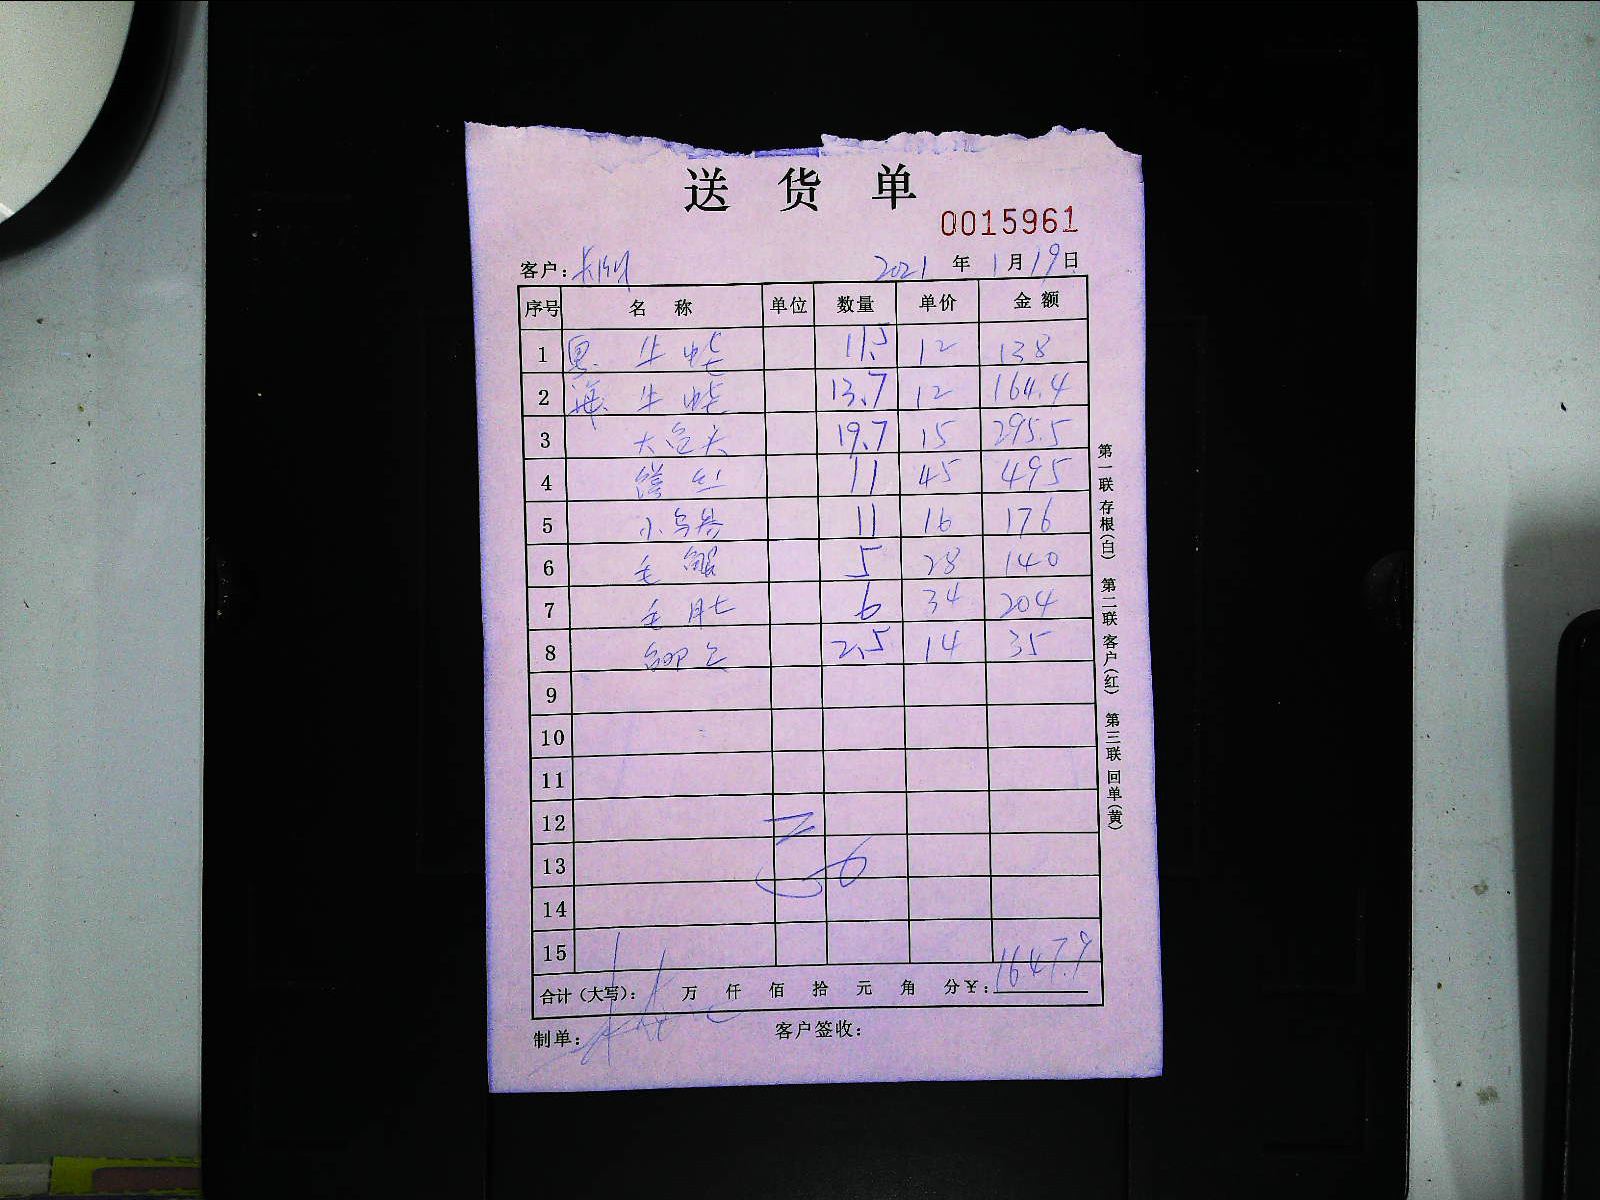 送货单
0015961
客户: 2021年1月19日
序号 名称 单位 数量 单价 金额
1 黑 生蚝 11.5 12 138
2 海 生蚝 13.7 12 164.4
3 大包头 19.7 15 295.5
4 丝 11 45 495
5 小 11 16 176
6 毛 5 28 140
7 毛肚 6 34 204
8 2.5 14 35
9
10
11
12
13
14
15
合计(大写): 万 仟 佰 拾 元 角 分¥:1647.9
制单: 客户签收:
第一联 存根(白) 第二联 客户(红) 第三联 回单(黄)